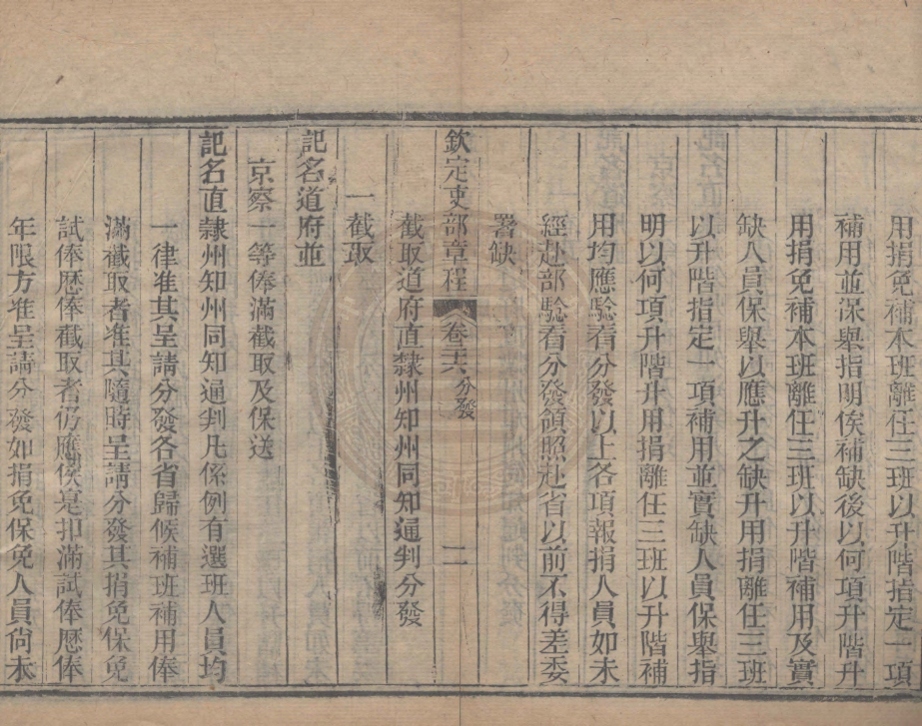 用捐免補本班離任三班以升階指定一項
補用並深舉指明俟補缺後以何項升階升
用捐免補本班離任三班以升階補用及實
缺人員保舉以應升之缺升用捐離任三班
以升階指定一項補用並實缺人員保舉指
明以何項升階升用捐離任三班以升階補
用均應驗看分發以上各項報捐人員如未
經赴部驗看分發領照赴省以前不得差委
署缺
欽定吏部章程 卷二六分發 二
截取道府直隸州知州同知通判分發
一截取
記名道府並
京察一等俸滿截取及保送
記名直隸州知州同知通判凡係例有選班人員均
一律准其呈請分發各省歸候補班補用俸
滿截取者准其隨時呈請分發其捐免保免
試俸歷俸截取者仍應俟寔扣滿試俸歷俸
年限方准呈請分發如捐免保免人員尙未